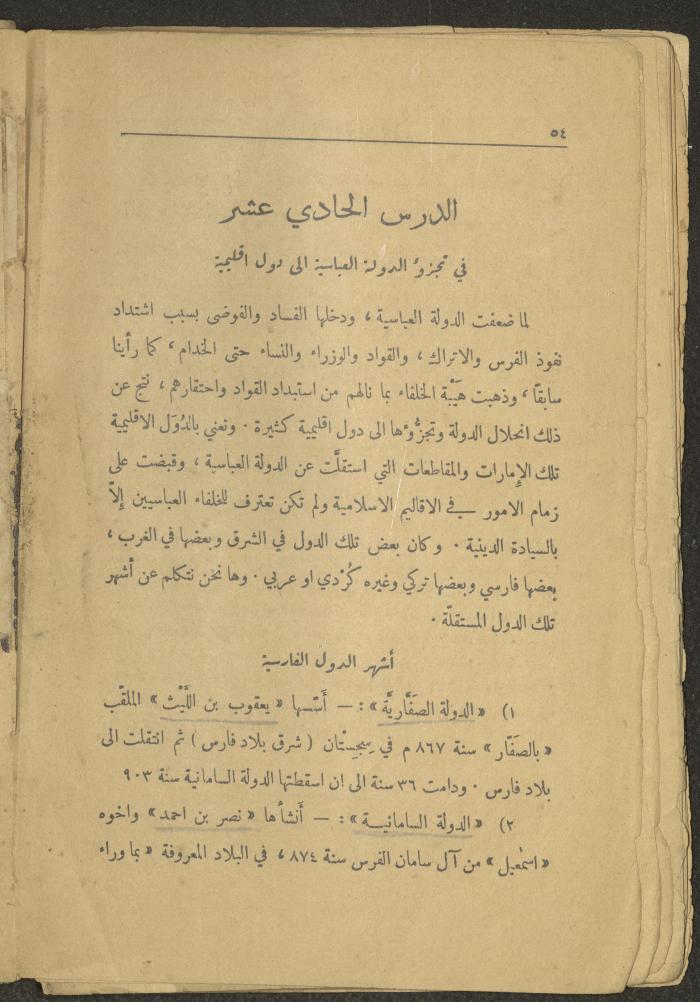 ٥٤
الدرس الحادي عشر
في تجزوء الدولة العباسية الى دول اقليمية
لما ضعفت الدولة العباسية ، ودخلها الفساد والفوضى بسبب اشتداد
نفوذ الفرس والاتراك ، والقواد والوزراء والنساء حتى الخدام ، كما رأينا
سابقاً ، وذهبت هَيْبة الخلفاء بما نالهم من استبداد القواد واحتقارهم ، نتج عن
ذلك انحلال الدولة وتجزُّوءها الى دول اقليمية كثيرة . ونعني بالدُوَل الاقليمية
تلك الإمارات والمقاطعات التي استقلَّت عن الدولة العباسية ، وقبضت على
زمام الامور في الاقاليم الاسلامية ولم تكن تعترف للخلفاء العباسيين إلاَّ
بالسيادة الدينية . وكان بعض تلك الدول في الشرق وبعضها في الغرب ،
بعضها فارسي وبعضها تركي وغيره كُرْدي او عربي . وها نحن نتكلم عن أشهر
تلك الدول المستقلّة .
أشهر الدول الفارسية
١) «الدولة الصَفَّاريَّة» : — أَسّسها «يعقوب بن اللَّيْث» الملقّب
«بالصَفّار» سنة ٨٦٧ م في سِجِسْتان ( شرق بلاد فارس ) ثم انتقلت الى
بلاد فارس . ودامت ٣٦ سنة الى ان اسقطتها الدولة السامانية سنة ٩٠٣
٢) «الدولة السامانيـة» : — أَنشأها «نصر بن احمد» واخوه
«اسمٰعيل» من آل سامان الفرس سنة ٨٧٤ ، في البلاد المعروفة «بما وراء